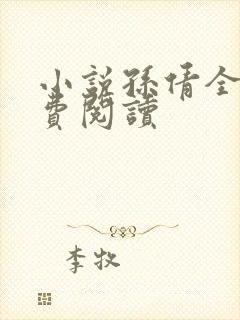 小說孫倩全
費閱讀
李牧